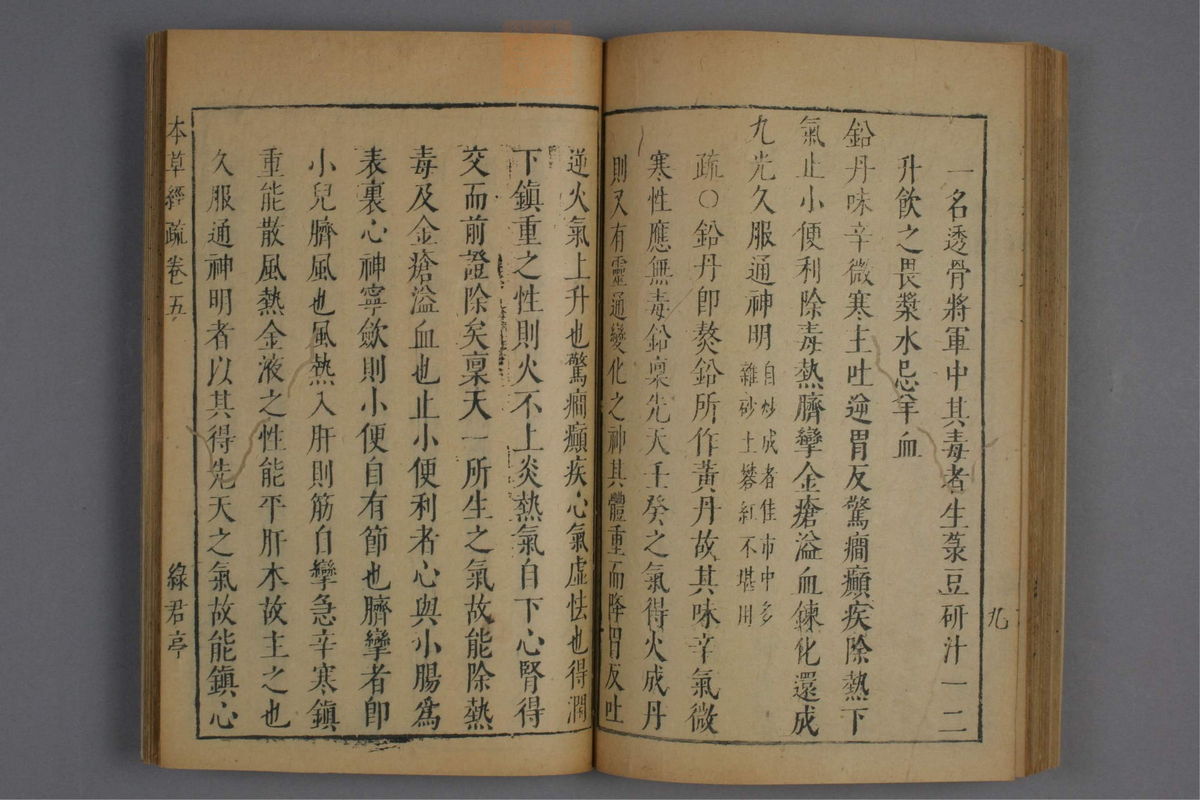 九
一名透骨將軍中其毒者生菉豆研汁一二
升飲之畏漿水忌羊血
鉛丹味辛微寒主吐逆胃反驚癎癲疾除熱下
氣止小便利除毒熱臍攣金瘡溢血鍊化還成
九光久服通神明自炒成者佳市中多
雜砂土礬紅不堪用
疏○鉛丹卽熬鉛所作黃丹故其味辛氣微
寒性應無毒鉛稟先天壬癸之氣得火成丹
則又有靈通變化之神其體重而降胃反吐
逆火氣上升也驚癎癲疾心氣虛怯也得潤
下鎮重之性則火不上炎熱氣自下心腎得
交而前證除矣稟天一所生之氣故能除熱
毒及金瘡溢血也止小便利者心與小腸爲
表裏心神寧歛則小便自有節也臍攣者卽
小兒臍風也風熱入肝則筋自攣急辛寒鎮
重能散風熱金液之性能平肝木故主之也
久服通神明者以其得先天之氣故能鎮心
本草經疏卷五
綠君亭